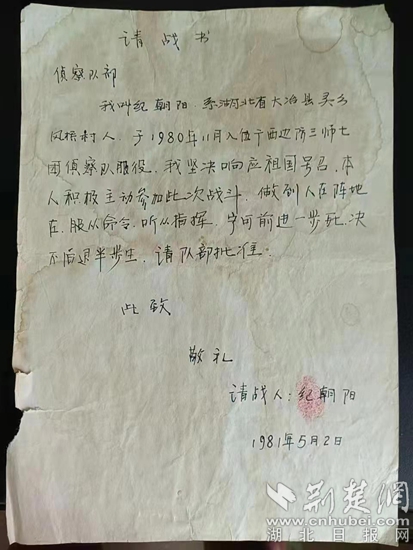 请战书
侦察队部
我叫纪朝阳 系湖北省大冶县灵乡
风桥村人 于1980年11月入伍广西边防三师七
团侦察队服役 我坚决响应祖国号召 本
人积极主动参加此次战斗 做到人在阵地
在 服从命令 听从指挥 宁可前进一步死 决
不后退半步生 请队部批准
此致
敬礼
请战人：纪朝阳
1981年5月2日
荆楚网
www.cnhubei.com
湖北日报网